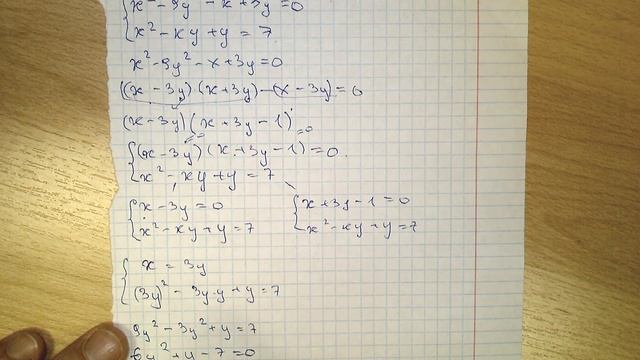 x² - 9y² - x + 3y = 0
x² - xy + y = 7
x² - 9y² - x + 3y = 0
((x - 3y)(x + 3y) - (x - 3y) = 0
(x - 3y)(x + 3y - 1) = 0
(x - 3y)(x + 3y - 1) = 0.
x² - xy + y = 7
x - 3y = 0 x + 3y - 1 = 0
x² - xy + y = 7 x² - xy + y = 7
x = 3y
(3y)² - 3y·y + y = 7
9y² - 3y² + y = 7
6y² + y - 7 = 0